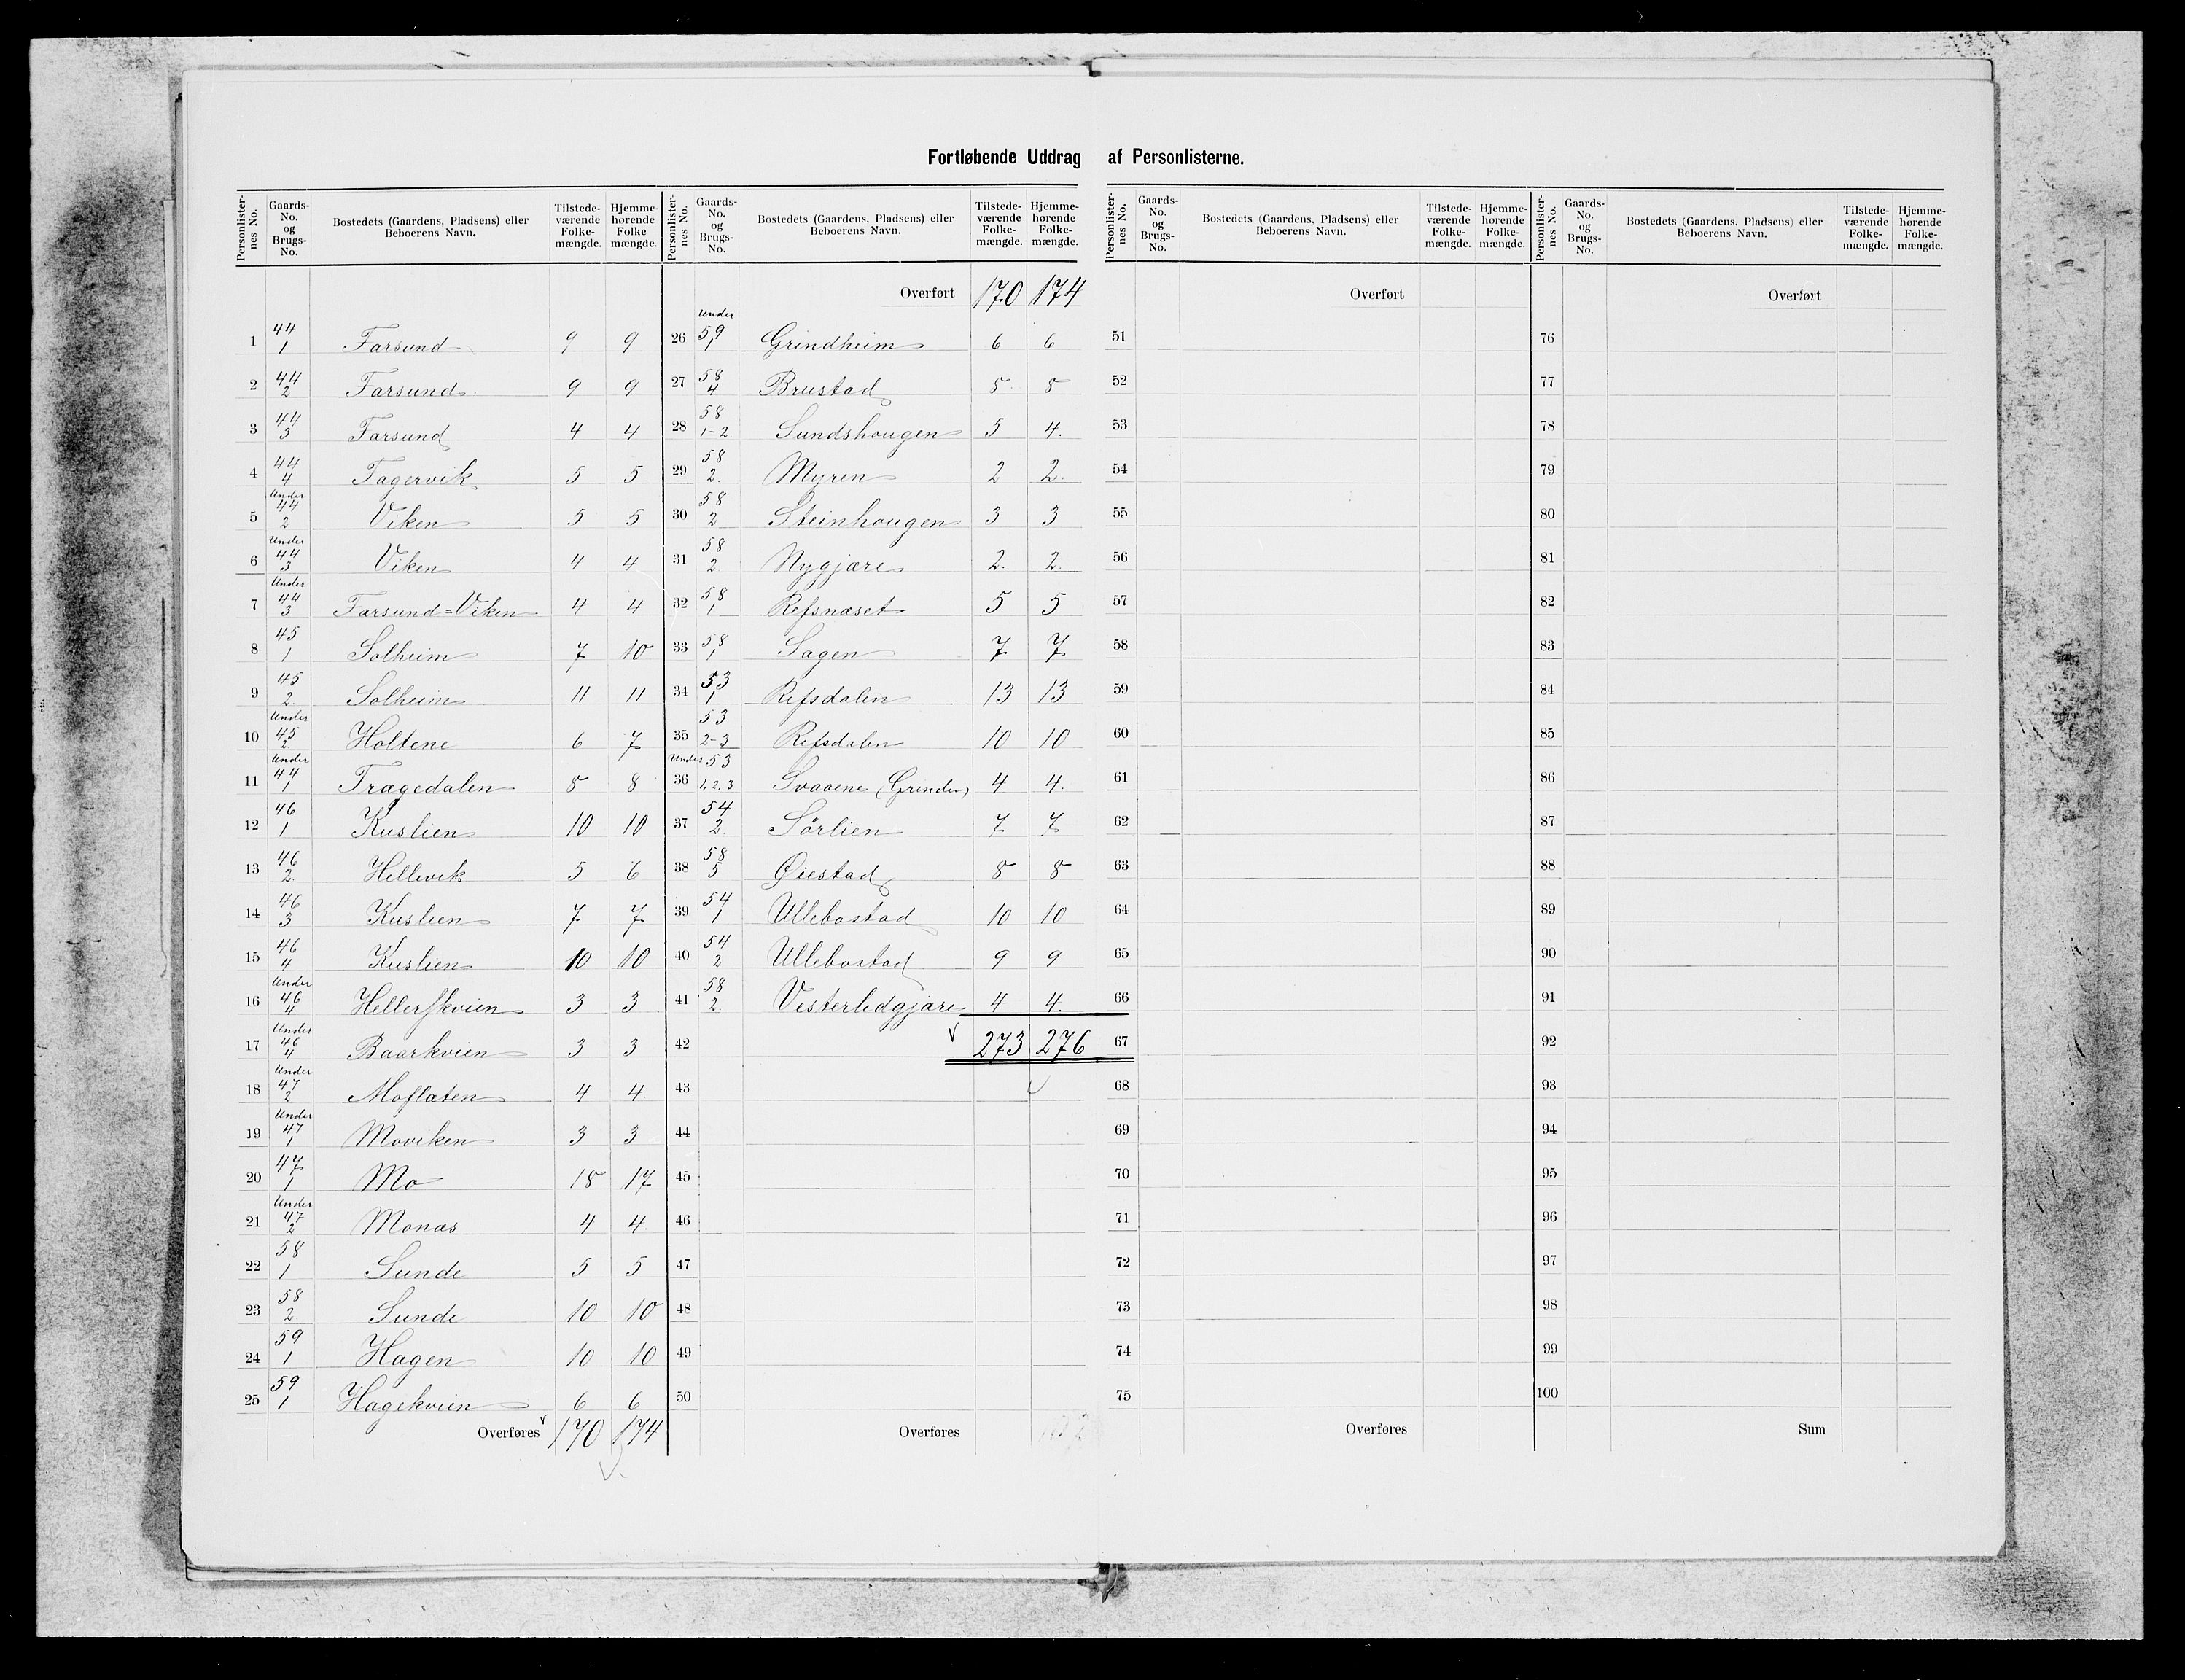 Fortløbende Uddrag af Personlisterne.
Personlister-nes No. Gaards-No. og Brugs-No. Bostedets (Gaardens, Pladsens) eller Beboerens Navn. Tilstede-værende Folke-mængde. Hjemme-hørende Folke mængde.
1 44/1 Farsund 9 9
2 44/2 Farsund 9 9
3 44/3 Farsund 4 4
4 44/4 Fagervik 5 5
5 Under 44/2 Viken 5 5
6 Under 44/3 Viken 4 4
7 Under 44/3 Farsund=Viken 4 4
8 45/1 Solheim 7 10
9 45/2 Solheim 11 11
10 Under 45/2 Holtene 6 7
11 Under 44/1 Trægedalen 8 8
12 46/1 Kuslien 10 10
13 46/2. Hellevik 5 6
14 46/3 Kuslien 7 7
15 46/4 Kuslien 10 10
16 Under 46/4 Hellerskvien 3 3
17 Under 46/4 Baarkvien 3 3
18 Under 47/2 Moflaten 4 4.
19 Under 47/1 Moviken 3 3
20 47/1 Mo 18 17
21 Under 47/2 Monæs 4 4.
22 58/1 Sunde 5 5
23 58/2. Sunde 10 10
24 59/1 Hagen 10 10
25 59/1 Hagekvien 6 6
Overføres 170 174
Personlister-nes No. Gaards-No. og Brugs-No. Bostedets (Gaardens, Pladsens) eller Beboerens Navn. Tilstede-værende Folke-mængde. Hjemme-hørende Folke-mængde.
Overført 170 174
26 Under 59/1 Grindheim 6 6
27 58/4 Brustad 8 8
28 58/1-2. Sundshougen 5 4.
29 58/2. Myren 2 2.
30 58/2 Steinhougen 3 3
31 58/2 Nygjære 2. 2.
32 58/1 Refsnæset 5 5
33 58/1 Sagen 7 7
34 53/1 Refsdalen 13 13
35 53/2-3 Refsdalen 10 10
36 Under 53/1,2,3 Svaaene (Grinden) 4 4.
37 54/2. Sørlien 7 7
38 58/5 Øiestad 8 8
39 54/1 Ullebostad 10 10
40 54/2 Ullebostad 9 9
41 58/2. Vesterledgjære 4 4.
42 273 276
43
44
45
46
47
48
49
50
Overføres
Personlister-nes No. Gaards-No. og Brugs-No. Bostedets (Gaardens, Pladsens) eller Beboerens Navn. Tilstede-værende Folke-mængde. Hjemme-hørende Folke-mængde.
Overført
51
52
53
54
55
56
57
58
59
60
61
62
63
64
65
66
67
68
69
70
71
72
73
74
75
Overføres
Personlister-nes No. Gaards-No. og Brugs-No. Bostedets (Gaardens, Pladsens) eller Beboerens Navn. Tilstede-værende Folke-mængde. Hjemme-hørende Folke-mængde.
Overført
76
77
78
79
80
81
82
83
84
85
86
87
88
89
90
91
92
93
94
95
96
97
98
99
100
Sum